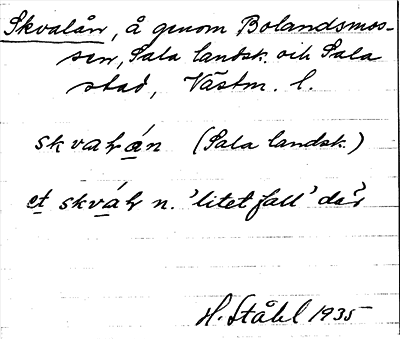 Skvalån, å genom Bolandsmos-
sen, Sala landsk. och Sala
stad, Västm. l.
skvaɫrån (Sala landsk.)
et skváɫr n. 'litet fall' där
H. Ståhl 1935